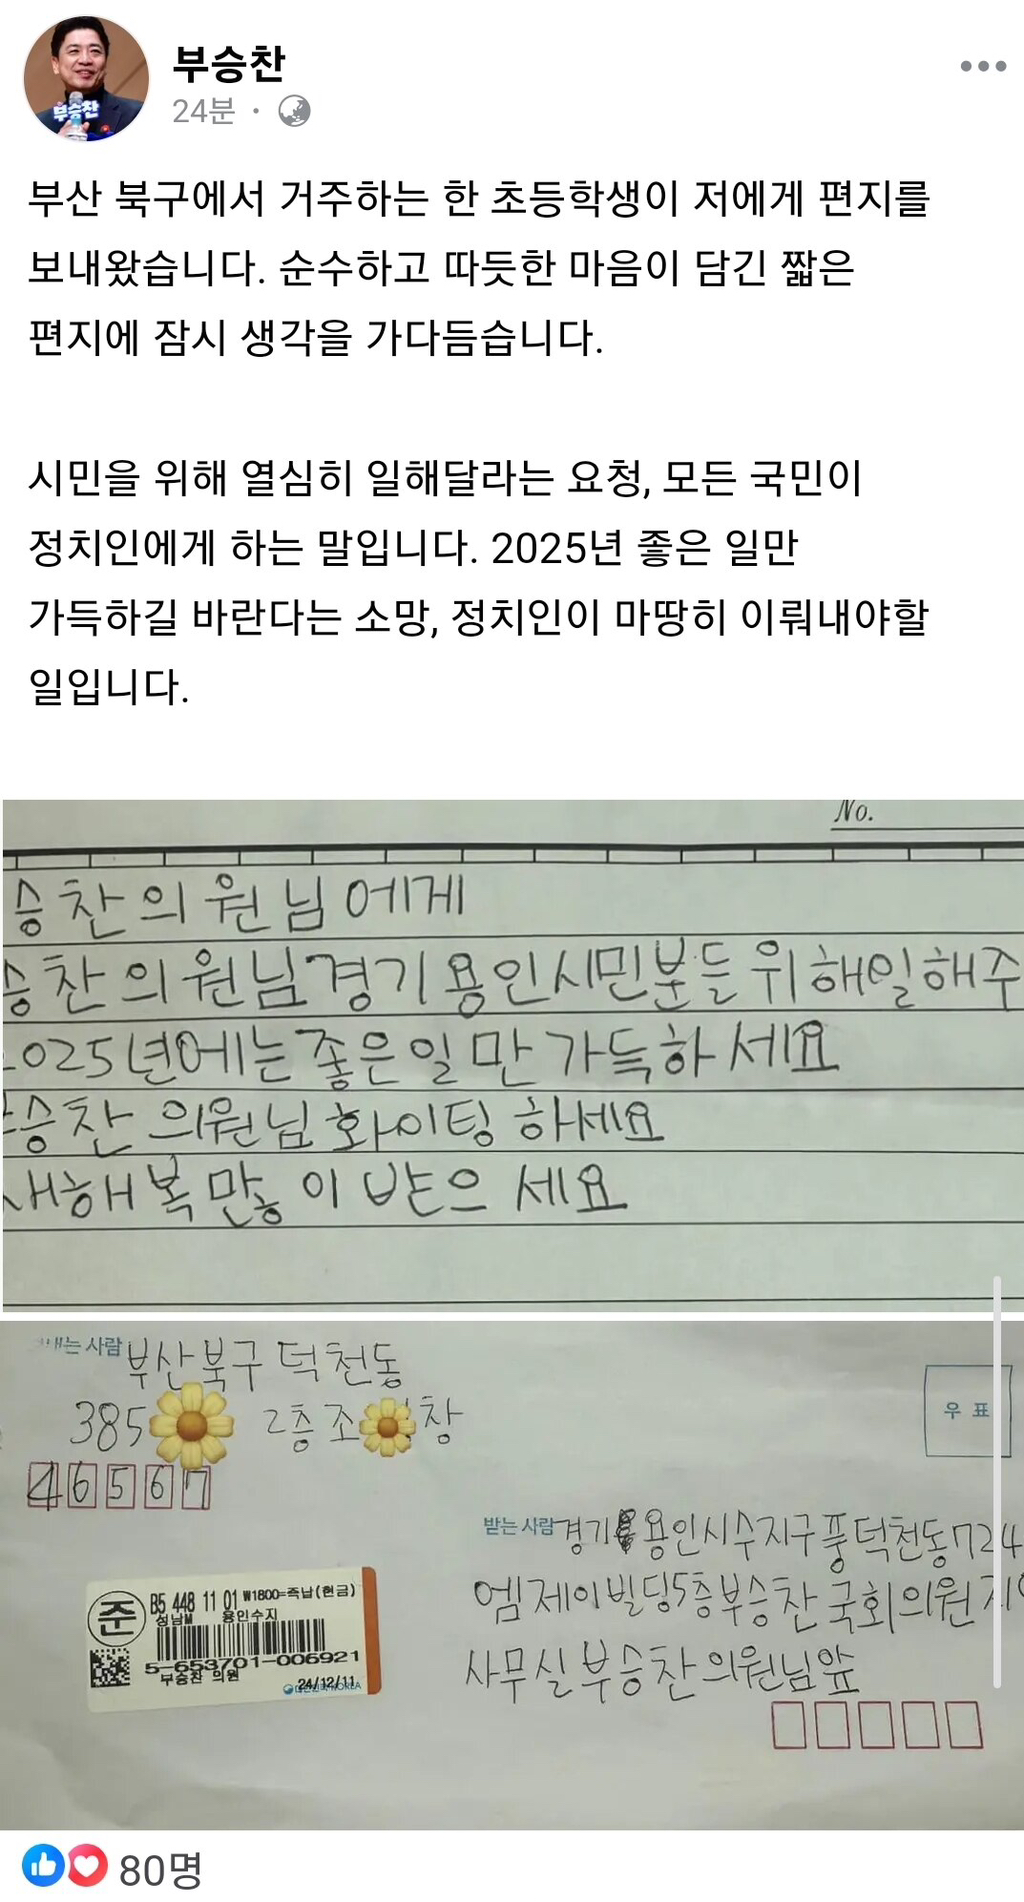 부승찬
24분 ·
부산 북구에서 거주하는 한 초등학생이 저에게 편지를
보내왔습니다. 순수하고 따듯한 마음이 담긴 짧은
편지에 잠시 생각을 가다듬습니다.
시민을 위해 열심히 일해달라는 요청, 모든 국민이
정치인에게 하는 말입니다. 2025년 좋은 일만
가득하길 바란다는 소망, 정치인이 마땅히 이뤄내야할
일입니다.
No.
승찬의원님에게
승찬의원님경기용인시민분들위해일해주
025년에는좋은일만가득하세요
승찬 의원님 화이팅 하세요
새해복많이 받으세요
내는 사람 부산북구 덕천동
385 2층 조 창
46567
우 표
받는 사람 경기 용인시수지구풍덕천동724
엠제이빌딩5층부승찬국회의원지
사무실부승찬의원님앞
준 B5 448 11 01 ₩1800=즉납(현금)
성남M 용인수지
5-653701-006921
부승찬 의원
24/12/11
80명